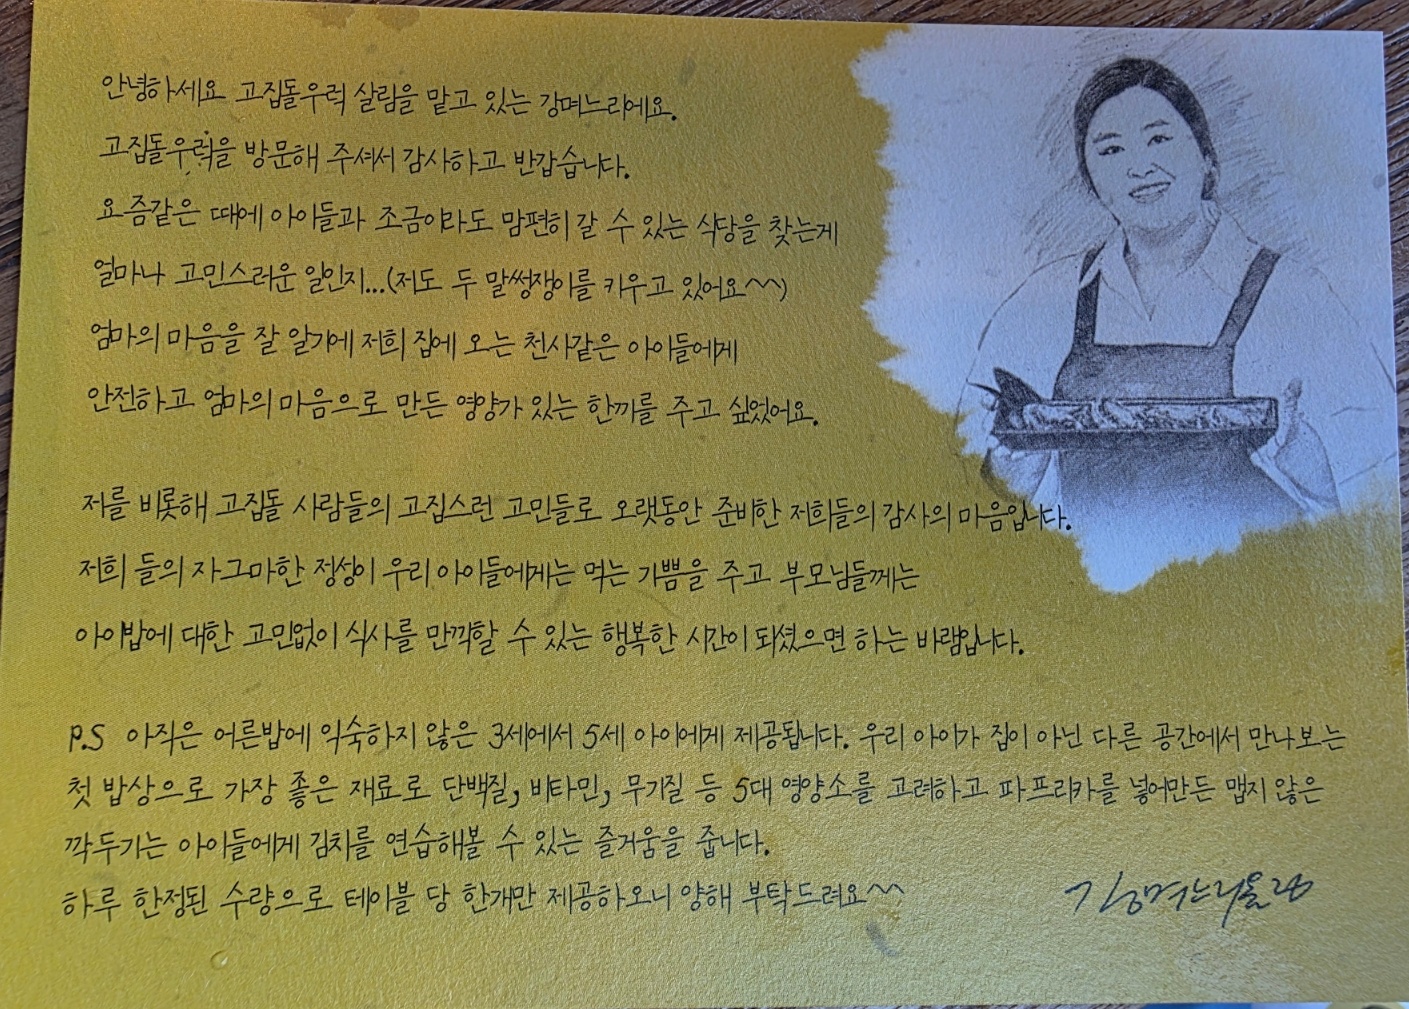 안녕하세요 고집돌우럭 살림을 맡고 있는 강며느리에요.
고집돌우럭을 방문해 주셔서 감사하고 반갑습니다.
요즘같은 때에 아이들과 조금이라도 맘편히 갈 수 있는 식당을 찾는게
얼마나 고민스러운 일인지...(저도 두 말썽쟁이를 키우고 있어요^^)
엄마의 마음을 잘 알기에 저희 집에 오는 천사같은 아이들에게
안전하고 엄마의 마음으로 만든 영양가 있는 한끼를 주고 싶었어요.
저를 비롯해 고집돌 사람들의 고집스런 고민들로 오랫동안 준비한 저희들의 감사의 마음입니다.
저희 들의 자그마한 정성이 우리 아이들에게는 먹는 기쁨을 주고 부모님들께는
아이밥에 대한 고민없이 식사를 만끽할 수 있는 행복한 시간이 되셨으면 하는 바램입니다.
P.S 아직은 어른밥에 익숙하지 않은 3세에서 5세 아이에게 제공됩니다. 우리 아이가 집이 아닌 다른 공간에서 만나보는
첫 밥상으로 가장 좋은 재료로 단백질, 비타민, 무기질 등 5대 영양소를 고려하고 파프리카를 넣어만든 맵지 않은
깍두기는 아이들에게 김치를 연습해볼 수 있는 즐거움을 줍니다.
하루 한정된 수량으로 테이블 당 한개만 제공하오니 양해 부탁드려요^^
강며느리올림